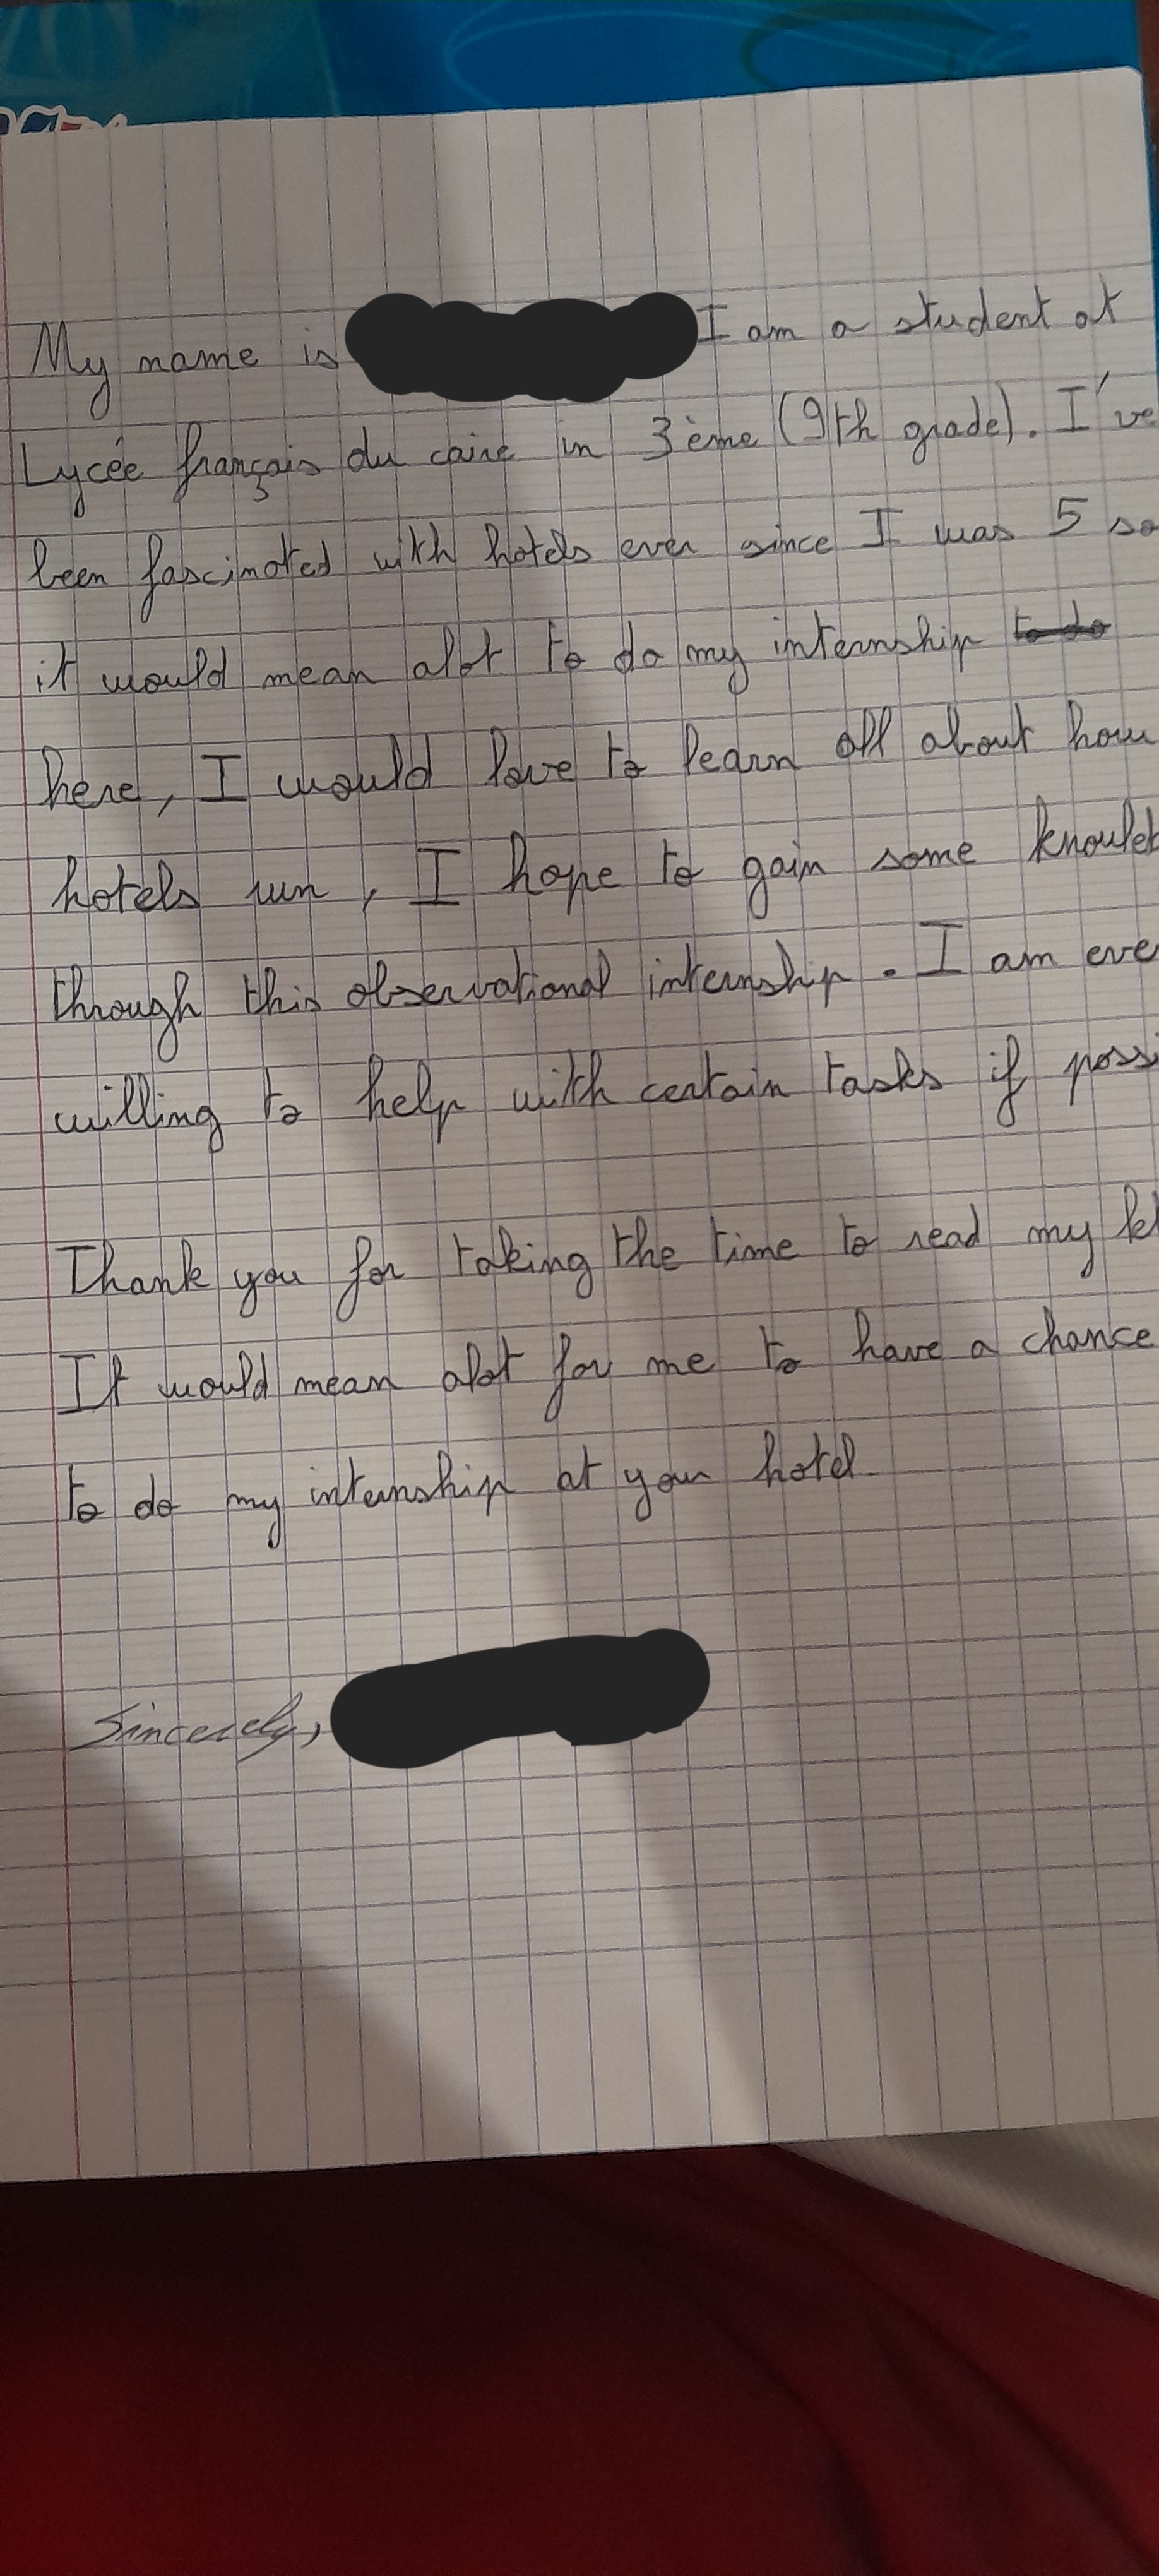 My name is I am a student at
Lycée français du caire in 3ème (9th grade). I've
been fascinated with hotels ever since I was 5 so
it would mean alot to do my internship to do
here, I would love to learn all about how
hotels run, I hope to gain some
through this observational internship. I am
willing to help with certain tasks if
Thank you for taking the time to read my
It would mean alot for me to have a chance
to do my internship at your hotel
Sincerely,